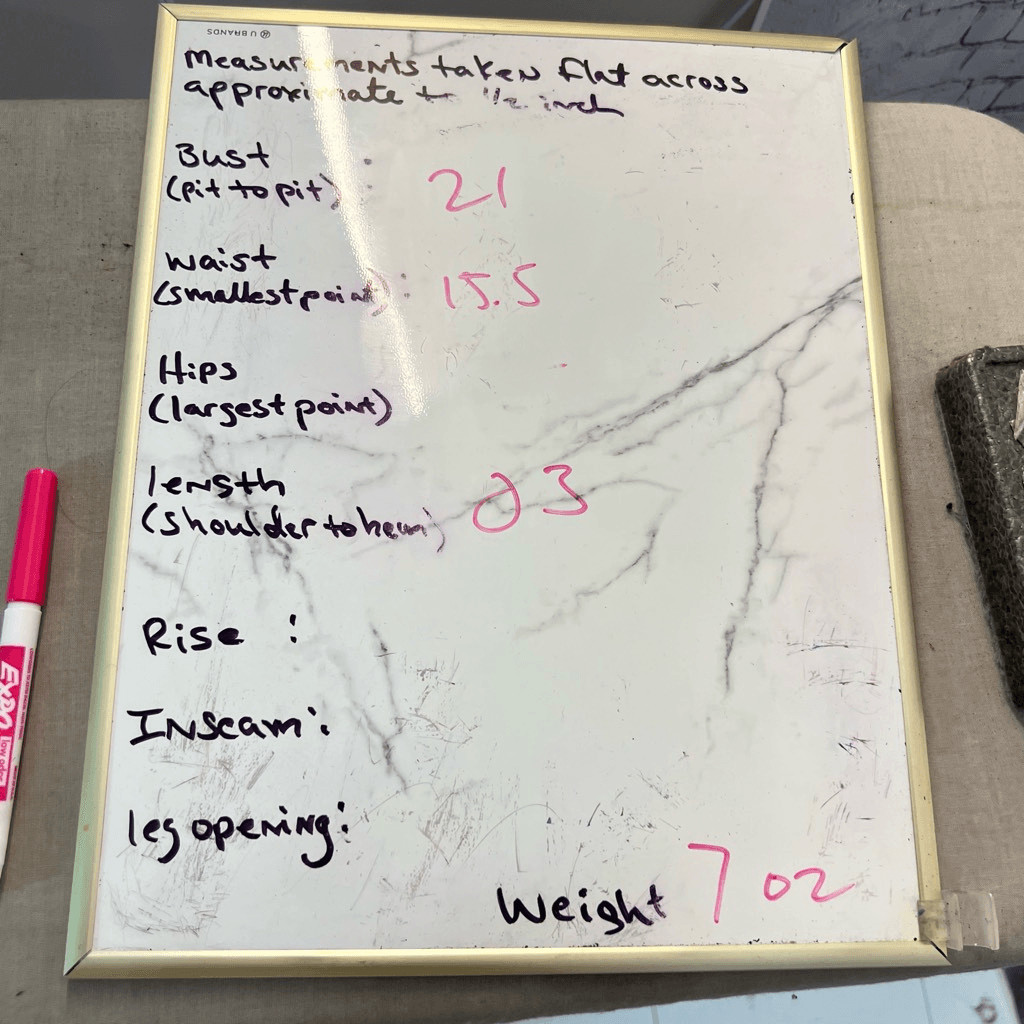 U BRANDS
Measurements taken flat across
approximate to 1/2 inch
Bust :
(pit to pit) : 21
waist
(smallest point) : 15.5
Hips
(largest point)
length
(shoulder to hem) 23
Rise :
Inseam :
leg opening :
Weight 7 oz
EXPO
low odor